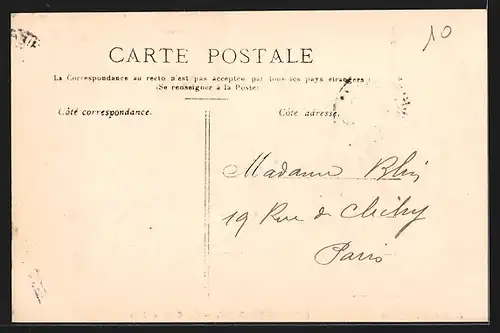 10
CARTE POSTALE
La Correspondance au recto n'est pas acceptée par tous les pays étrangers
(Se renseigner à la Poste)
Côté correspondance.
Côté adresse.
Madame Blin
19 Rue de Clichy
Paris